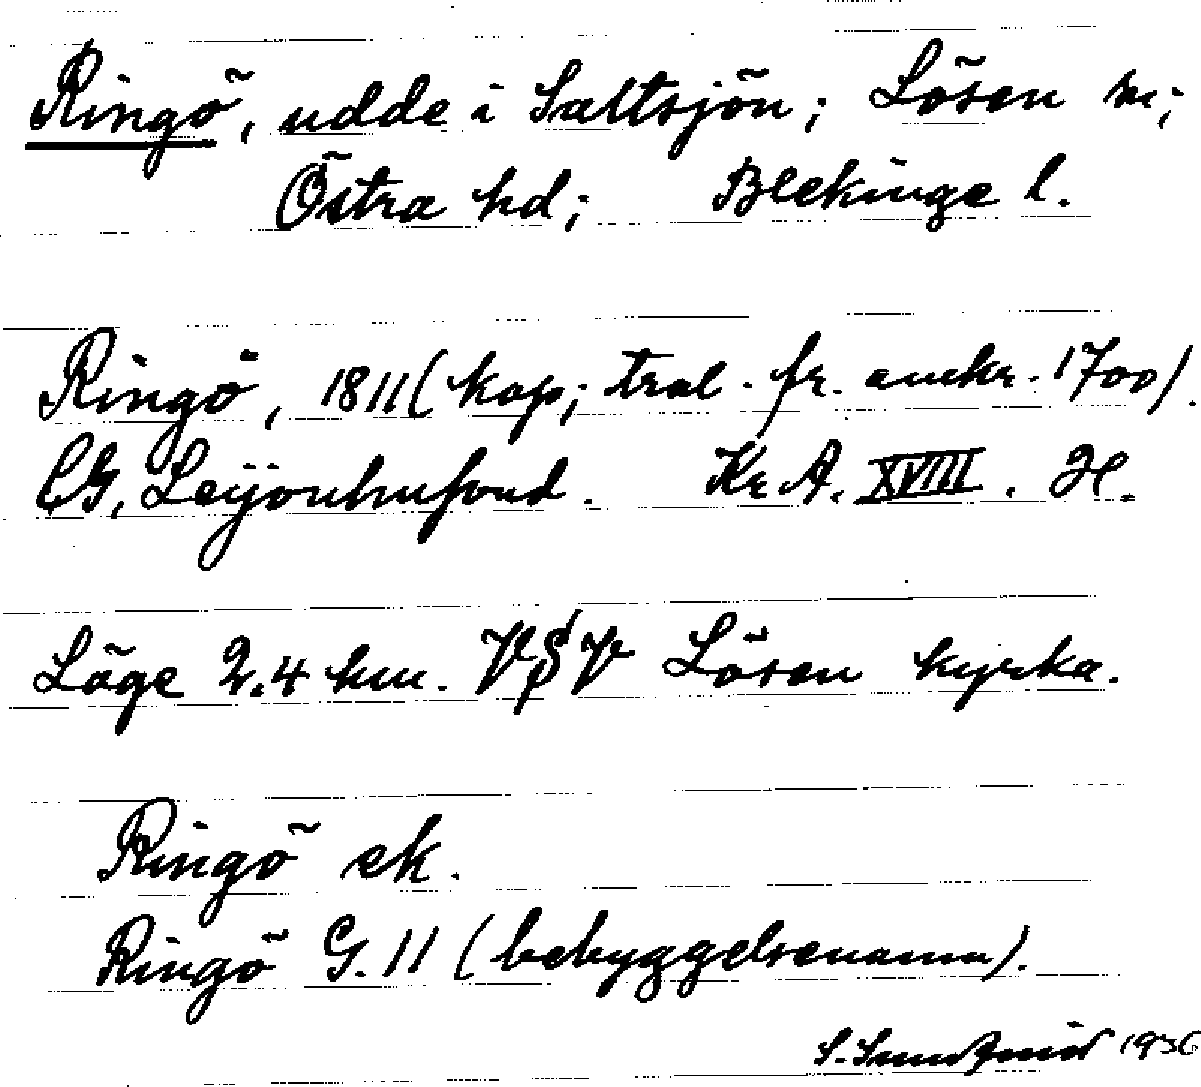 Ringö, udde i Saltsjön; Lösen sn;
Östra hd; Blekinge l.
Ringö, 1811 (kop; tral. fr. omkr. 1700).
CG, Leijonhufvud. Kr. A. XVIII. H.
Läge 2.4 km. VSV Lösen kyrka.
Ringö ek.
Ringö G. 11 (bebyggelsenamn).
S. 1936